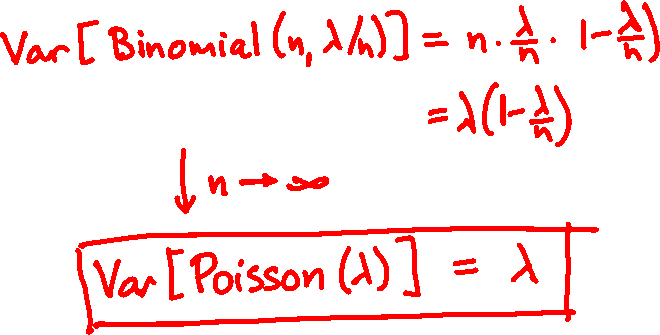 Var[Binomial(n, λ/n)] = n · λ/n · 1-λ/n)
= λ(1-λ/n)
↓ n → ∞
Var[Poisson(λ)] = λ